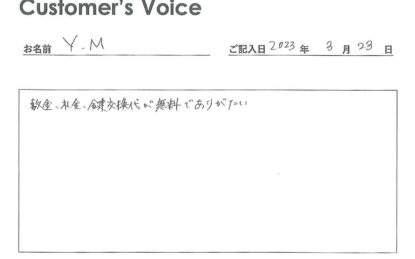 Customer's Voice
お名前 Y.M ご記入日 2023 年 3 月 23 日
敷金、礼金、鍵交換代が無料でありがたい